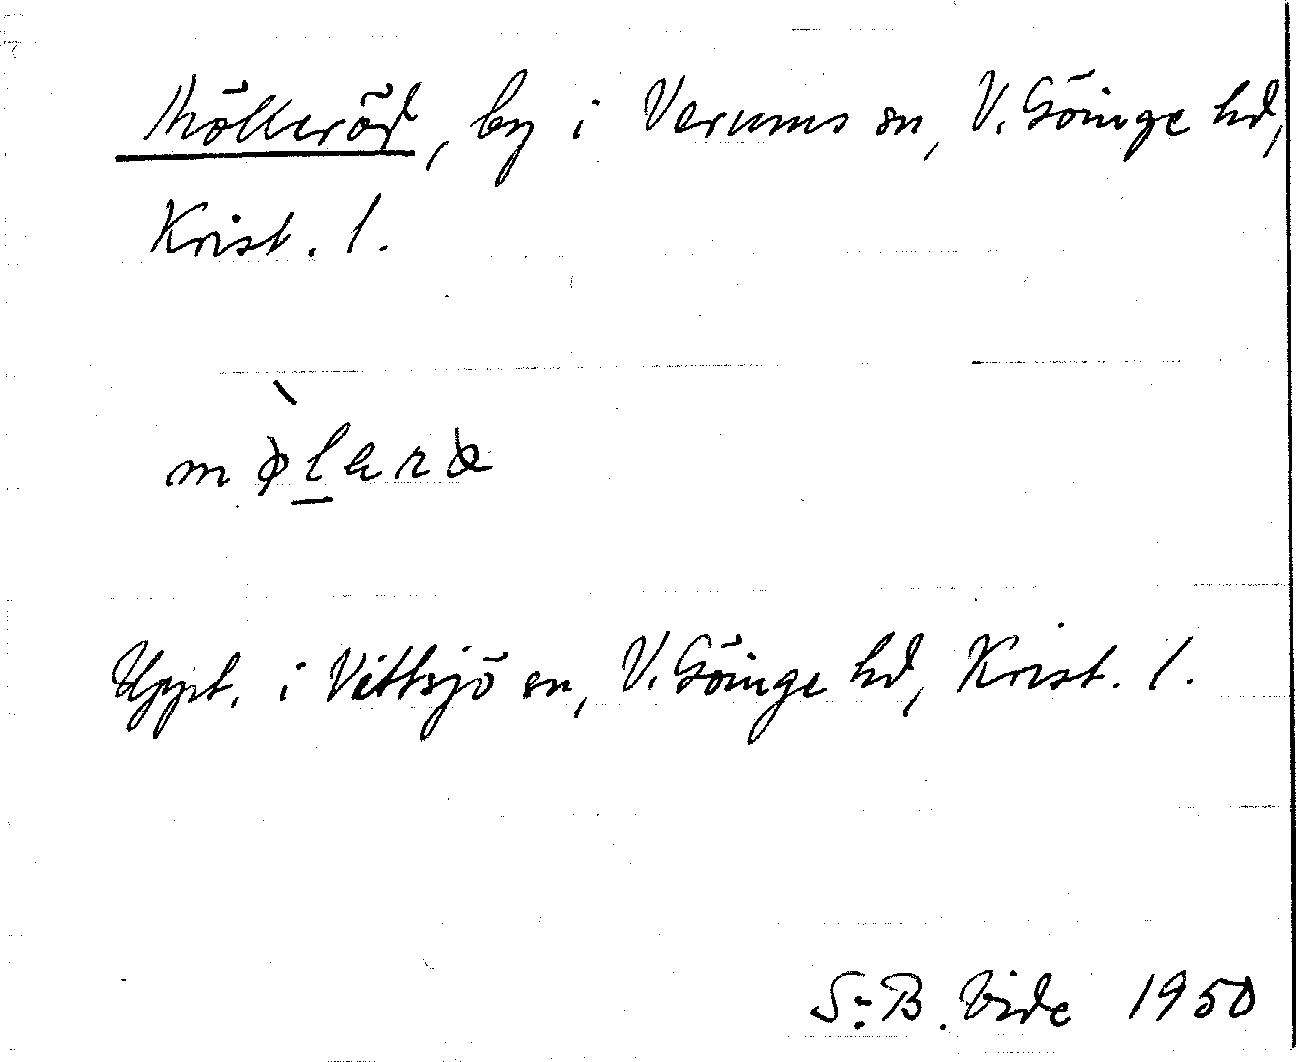 Mölleröd, by i Verums sn, V. Göinge hd,
Krist. l.
mø̀l̲erø
Uppt. i Vittsjö sn, V. Göinge hd, Krist. l.
S:B. Vide 1950